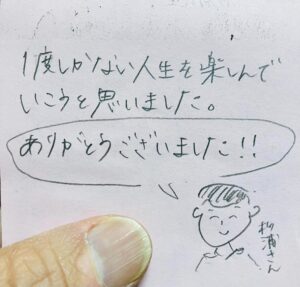 1度しかない人生を楽しんで
いこうと思いました。
ありがとうございました!!
松浦さん